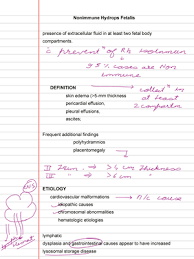 Nonimmune Hydrops Fetalis
presence of extracellular fluid in at least two fetal body
compartments
prevent of Rh
95% cases are Non
immune
DEFINITION
called in
at least
2 compartm
skin edema (>5 mm thickness
pericardial effusion,
pleural effusions,
ascites.
Frequent additional findings
polyhydramnios
placentomegaly
II → ≥ 4 cm thickness
III → ≥ 6 cm
ETIOLOGY
cardiovascular malformations → M/c cause
idiopathic causes
chromosomal abnormalities
hematologic etiologies
lymphatic
dysplasia and gastrointestinal causes appear to have increased
lysosomal storage disease